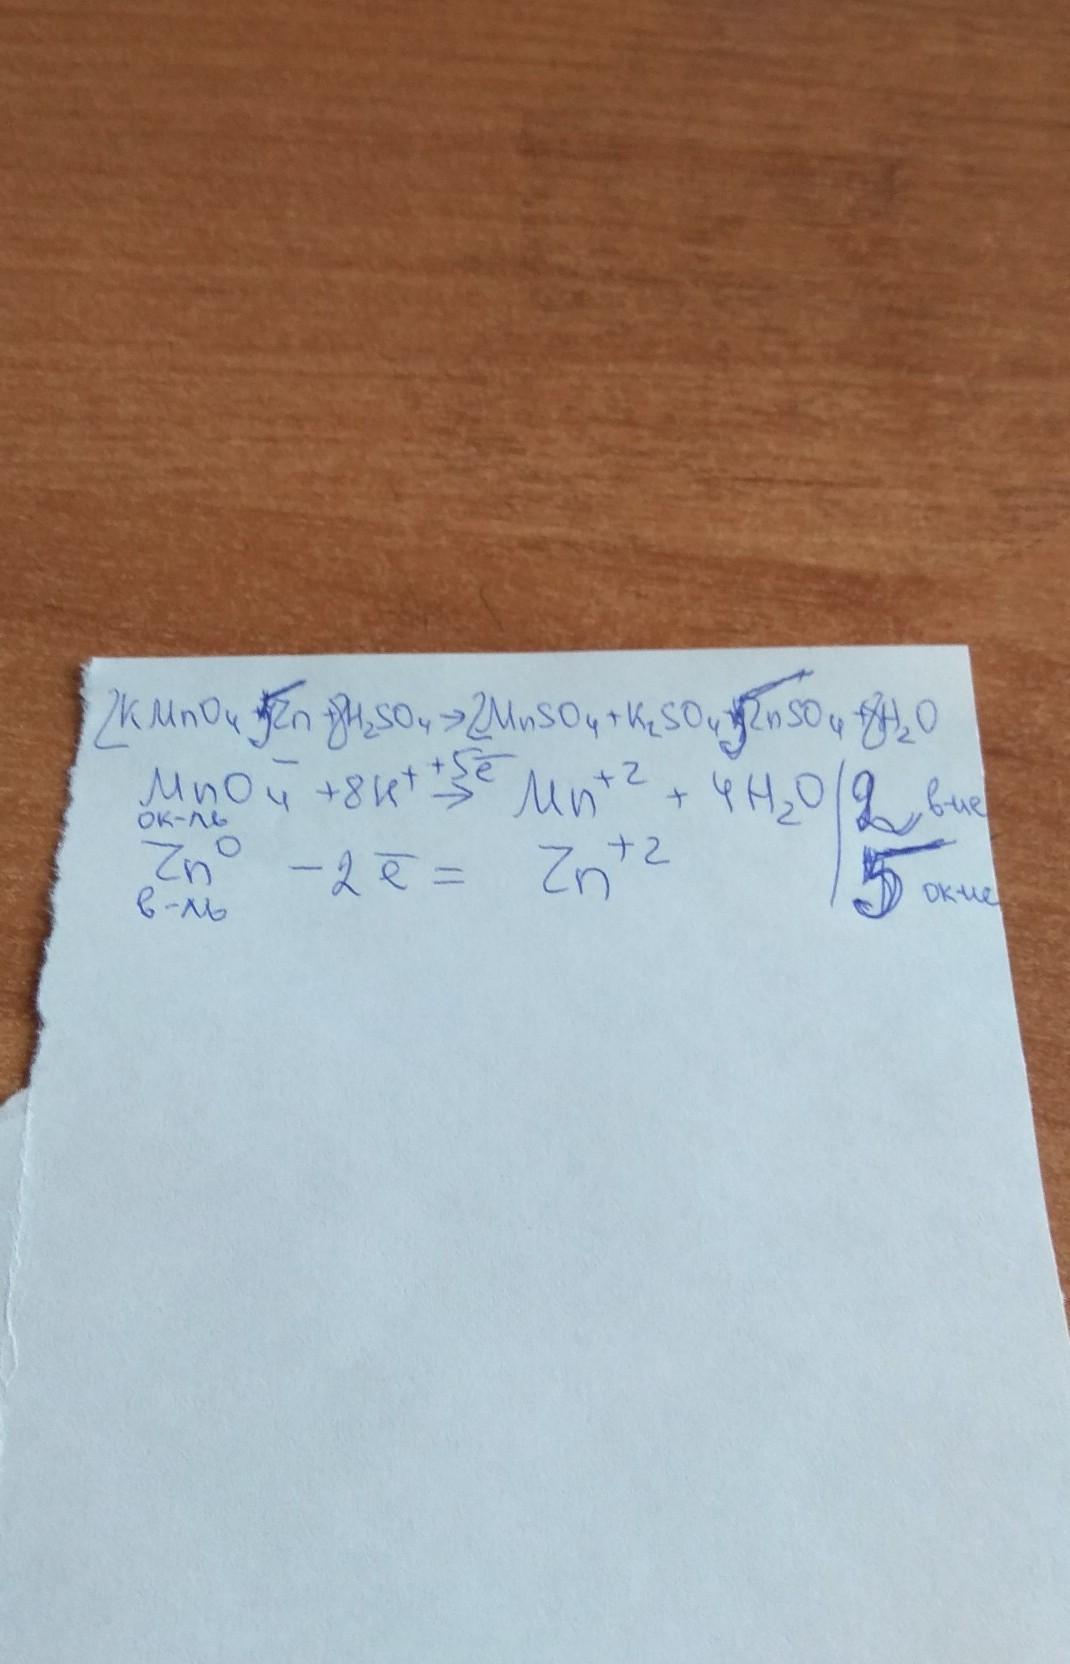 2KMnO₄+5Zn+8H₂SO₄→2MnSO₄+K₂SO₄+5ZnSO₄+8H₂O
MnO₄⁻ +8H⁺ +5ē → Mn⁺² + 4H₂O | 2 в-ие
ок-ль
Zn⁰ -2ē = Zn⁺² | 5 ок-ие
в-ль